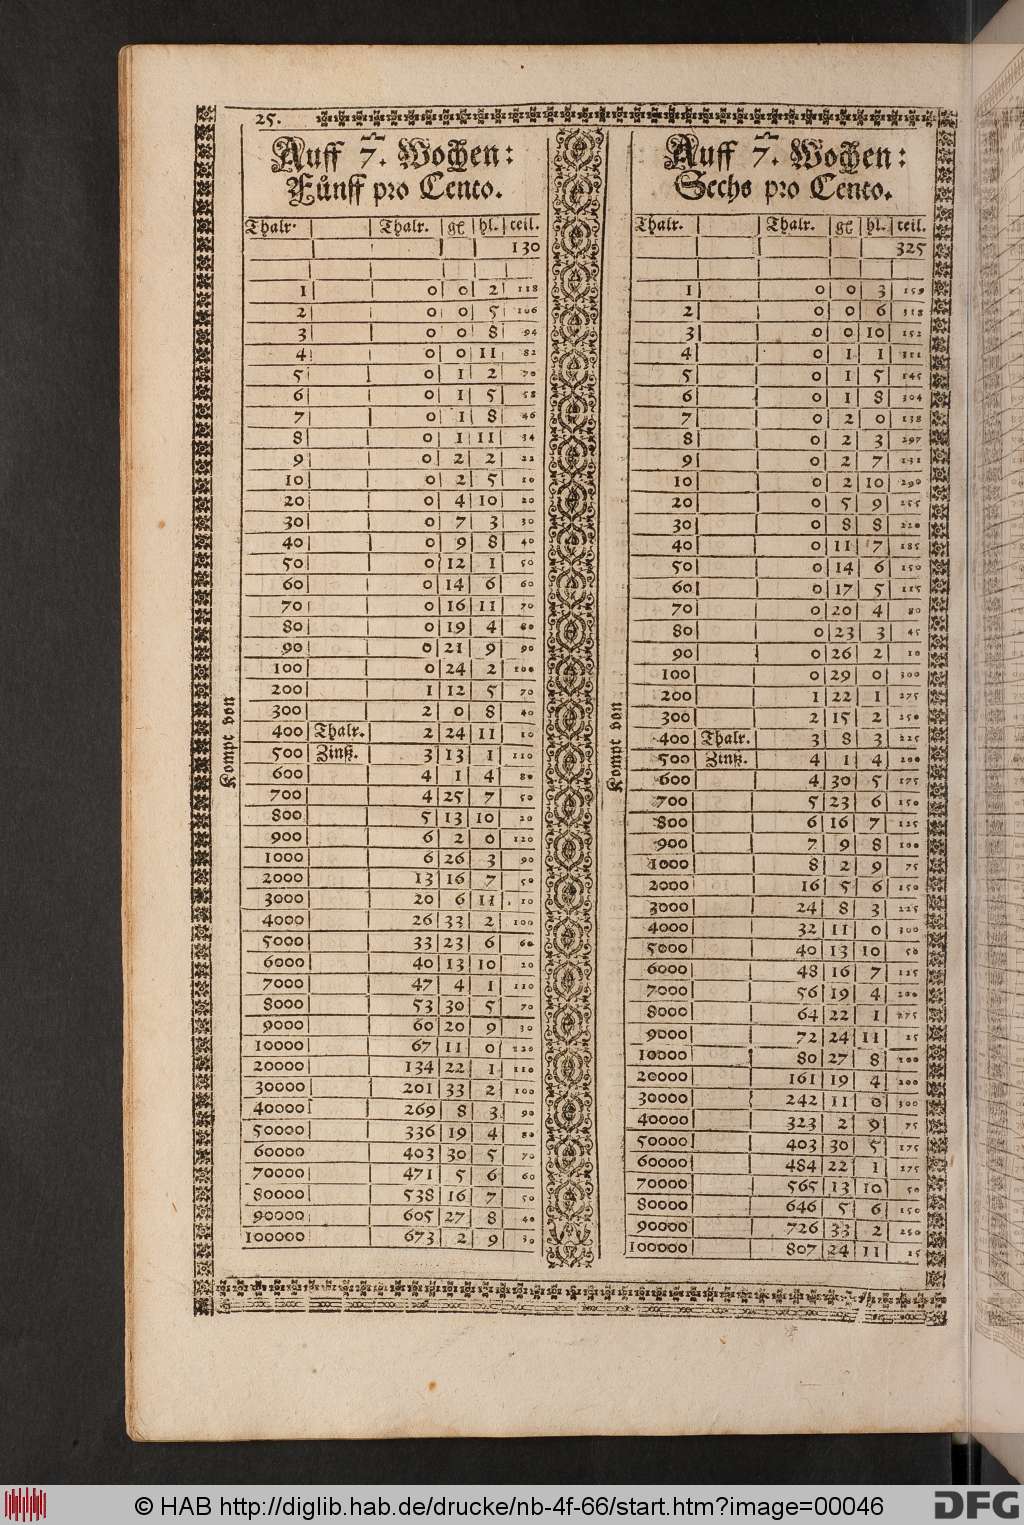 25.
Auff 7. Wochen:
Fůnff pro Cento.
Thalr. Thalr. gl hl. teil.
130
1 0 0 2 118
2 0 0 5 106
3 0 0 8 94
4 0 0 11 82
5 0 1 2 70
6 0 1 5 58
7 0 1 8 46
8 0 1 11 34
9 0 2 2 22
10 0 2 5 10
20 0 4 10 20
30 0 7 3 30
40 0 9 8 40
50 0 12 1 50
60 0 14 6 60
70 0 16 11 70
80 0 19 4 80
90 0 21 9 90
100 0 24 2 100
200 1 12 5 70
300 2 0 8 40
400 Thalr. 2 24 11 10
500 Zinß. 3 13 1 110
600 4 1 4 80
700 4 25 7 50
800 5 13 10 20
900 6 2 0 120
1000 6 26 3 90
2000 13 16 7 50
3000 20 6 11 10
4000 26 33 2 100
5000 33 23 6 60
6000 40 13 10 20
7000 47 4 1 110
8000 53 30 5 70
9000 60 20 9 30
10000 67 11 0 120
20000 134 22 1 110
30000 201 33 2 100
40000 269 8 3 90
50000 336 19 4 80
60000 403 30 5 70
70000 471 5 6 60
80000 538 16 7 50
90000 605 27 8 40
100000 673 2 9 30
Kompt von
Auff 7. Wochen:
Sechs pro Cento.
Thalr. Thalr. gl hl. teil.
325
1 0 0 3 159
2 0 0 6 318
3 0 0 10 152
4 0 1 1 311
5 0 1 5 145
6 0 1 8 304
7 0 2 0 138
8 0 2 3 297
9 0 2 7 131
10 0 2 10 290
20 0 5 9 255
30 0 8 8 220
40 0 11 7 185
50 0 14 6 150
60 0 17 5 115
70 0 20 4 80
80 0 23 3 45
90 0 26 2 10
100 0 29 0 300
200 1 22 1 275
300 2 15 2 250
400 Thalr. 3 8 3 225
500 Zinß. 4 1 4 200
600 4 30 5 175
700 5 23 6 150
800 6 16 7 125
900 7 9 8 100
1000 8 2 9 75
2000 16 5 6 150
3000 24 8 3 225
4000 32 11 0 300
5000 40 13 10 50
6000 48 16 7 125
7000 56 19 4 200
8000 64 22 1 275
9000 72 24 11 25
10000 80 27 8 100
20000 161 19 4 200
30000 242 11 0 300
40000 323 2 9 75
50000 403 30 5 175
60000 484 22 1 275
70000 565 13 10 50
80000 646 5 6 150
90000 726 33 2 250
100000 807 24 11 25
Kompt von
© HAB http://diglib.hab.de/drucke/nb-4f-66/start.htm?image=00046
DFG